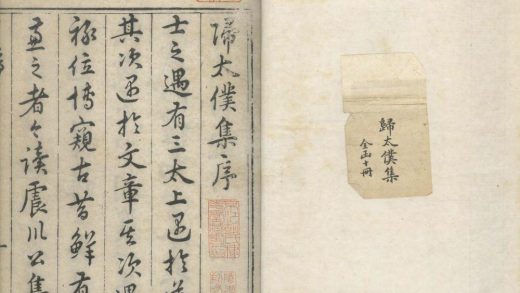 歸太僕集
全函十冊
歸太僕集序
士之遇有三太上遇於
其次遇於文章其次遇
祿位博窺古昔鮮有
兼之者今讀震川公集